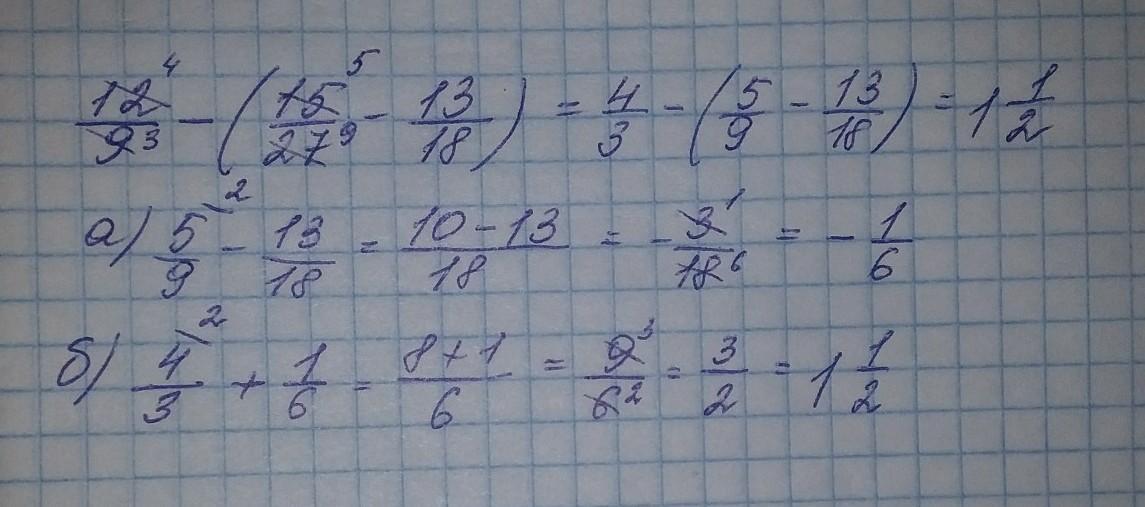 12⁴/9³ - (15⁵/27⁹ - 13/18) = 4/3 - (5/9 - 13/18) = 1 1/2
а) 5\²/9 - 13/18 = 10-13/18 = - 3¹/18⁶ = - 1/6
б) 4\²/3 + 1/6 = 8+1/6 = 9³/6² = 3/2 = 1 1/2